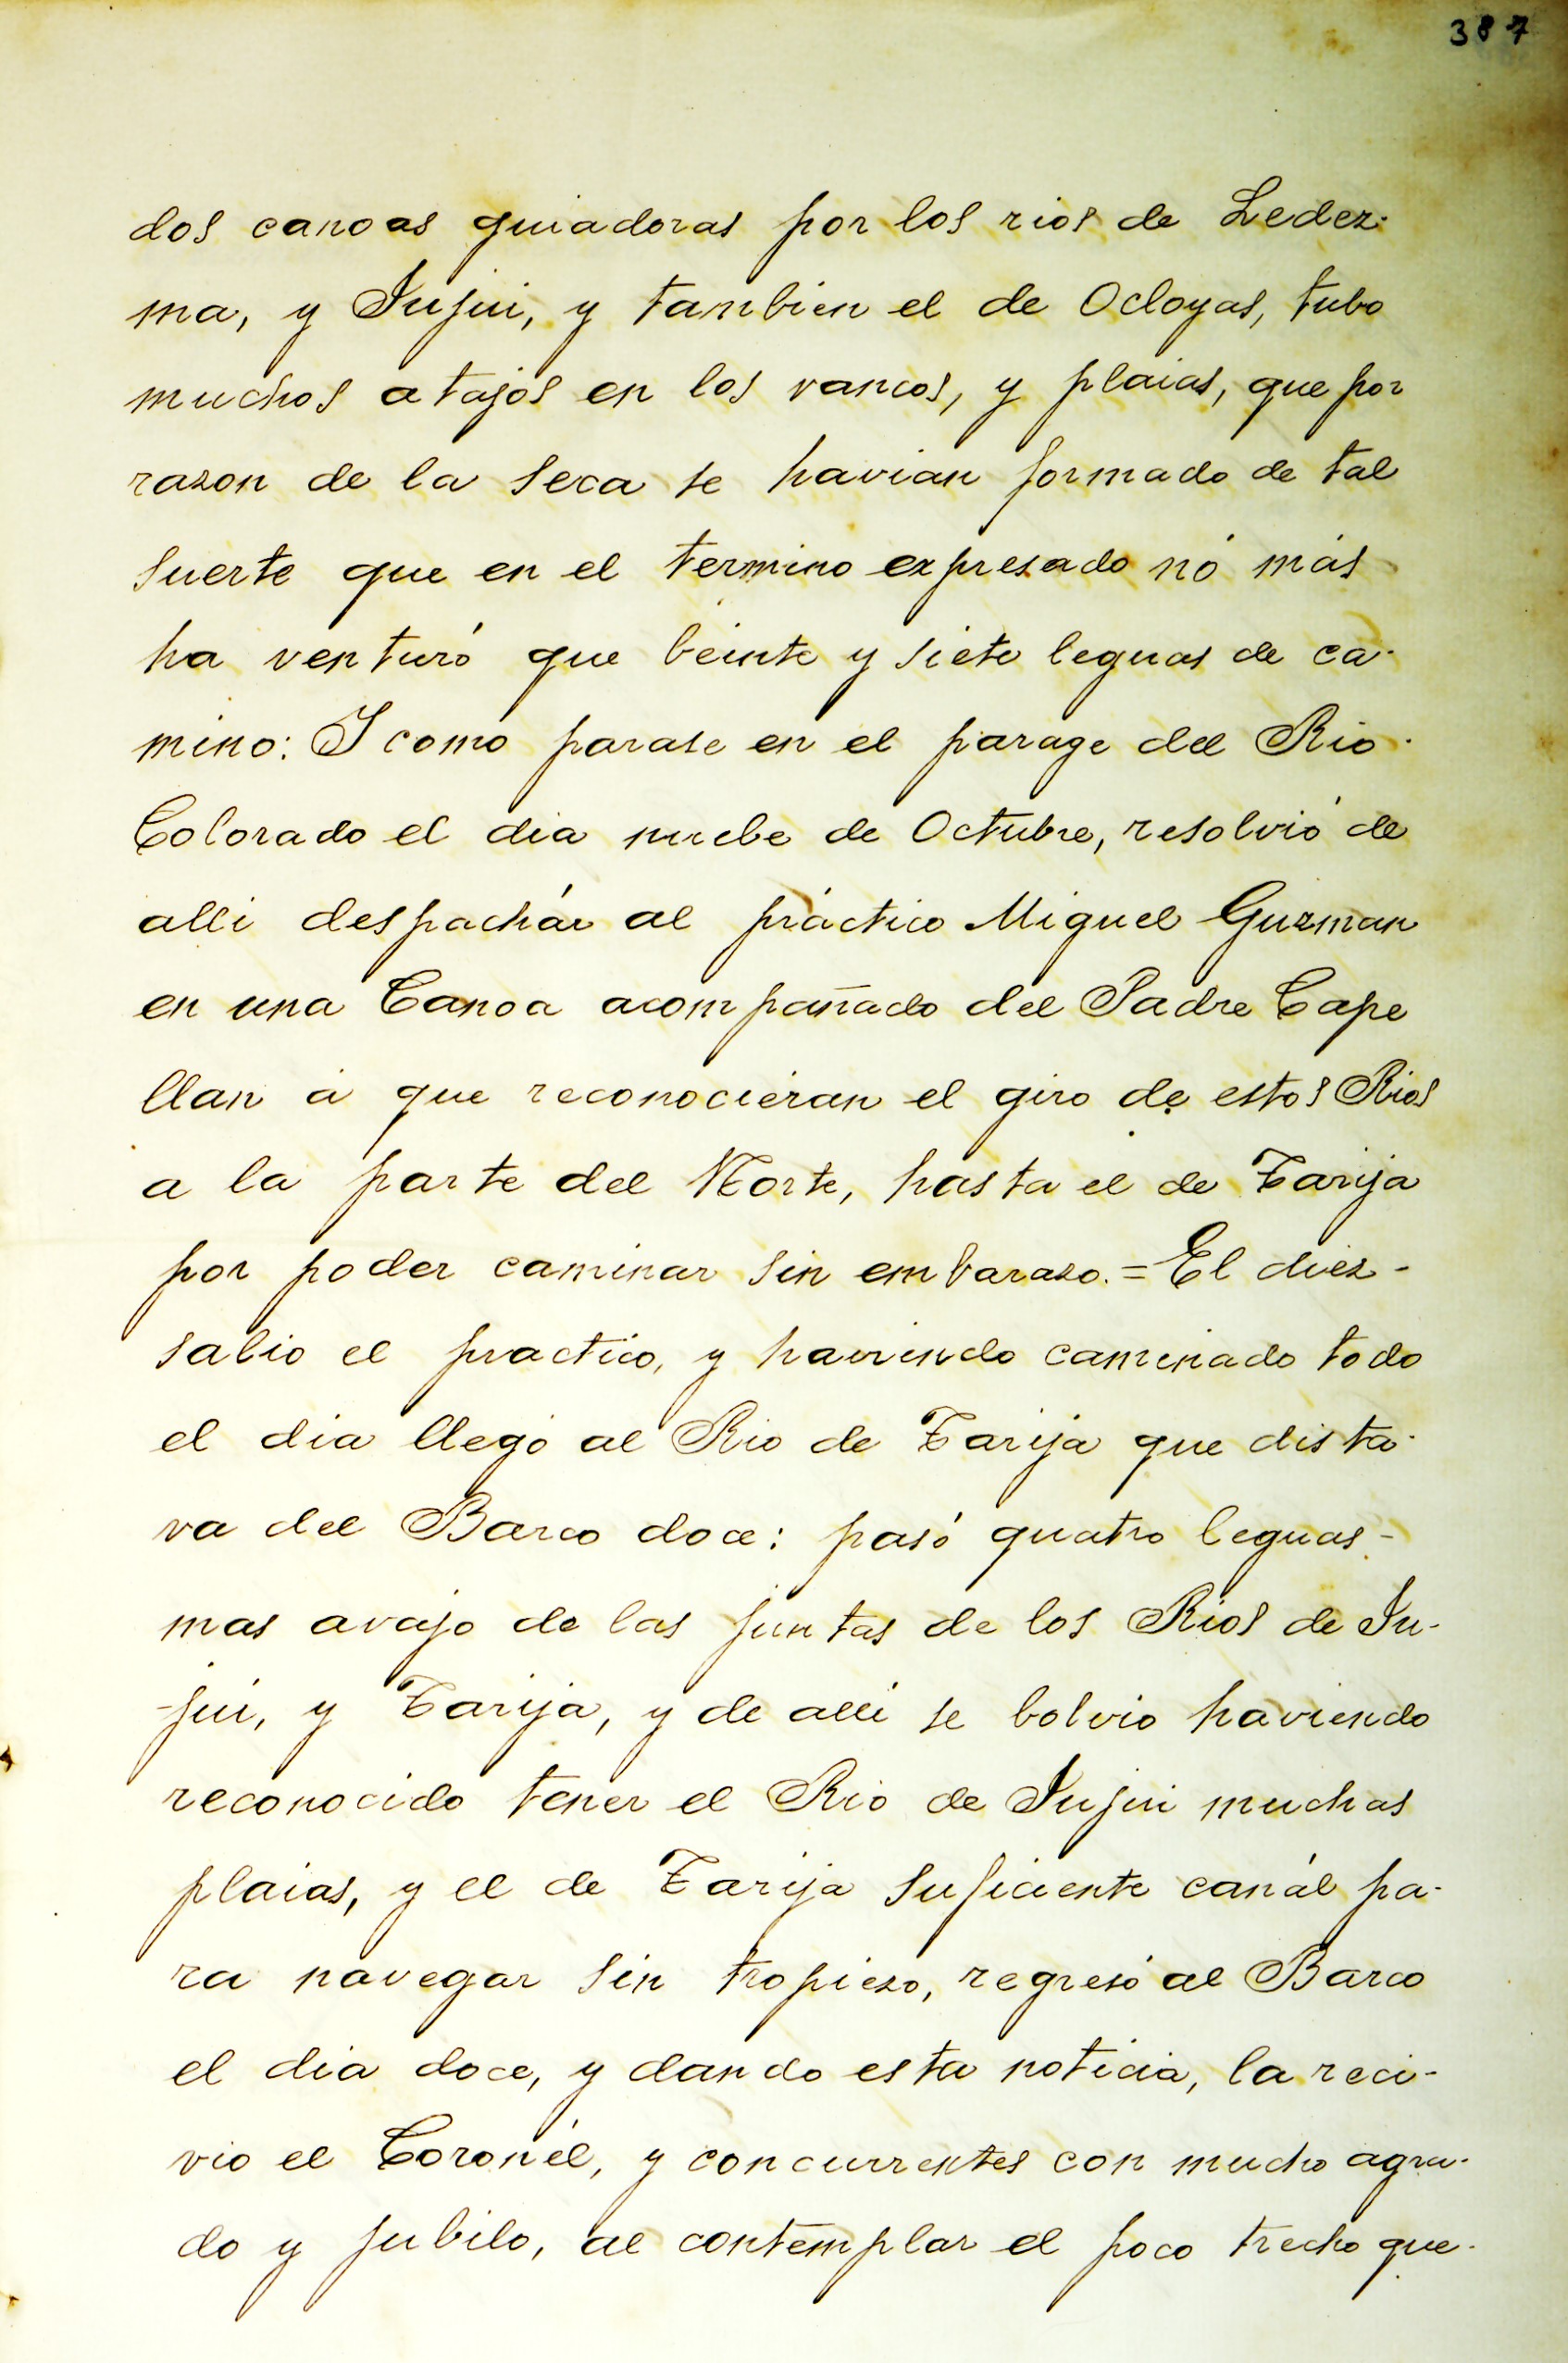 387
dos canoas guiadoras por los rios de Ledez-
ma, y Jujui, y tambien el de Ocloyas, tubo
muchos atajos en los vancos, y plaias, que por
razon de la seca se havian formado de tal
suerte que en el termino expresado nó más
ha venturó que beinte y siete leguas de ca-
mino: I como parase en el parage del Rio
Colorado el dia nuebe de Octubre, resolvió de
alli despachár al práctico Miguel Guzman
en una Canoa acompañado del Padre Cape
llan á que reconociéran el giro de estos Rios
a la parte del Norte, hasta el de Tarija
por poder caminar sin embarazo.=El diez-
salio el practico, y haviendo caminado todo
el dia llegó al Rio de Tarija que dista-
va del Barco doce: pasó quatro leguas-
mas avajo de las juntas de los Rios de Ju-
-jui, y Tarija, y de alli se bolvio haviendo
reconocido tener el Rio de Jujui muchas
plaias, y el de Tarija suficiente canál pa-
ra navegar sin tropiezo, regresó al Barco
el dia doce, y dando esta noticia, la reci-
vio el Coronél, y concurrentes con mucho agra-
do y jubilo, al contemplar el poco trecho que-